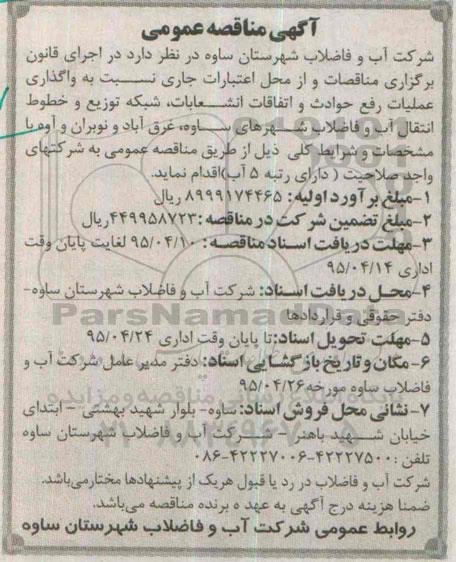 آگهی مناقصه عمومی
شرکت آب و فاضلاب شهرستان ساوه در نظر دارد در اجرای قانون
برگزاری مناقصات و از محل اعتبارات جاری نسبت به واگذاری
عملیات رفع حوادث و اتفاقات انشعابات، شبکه توزیع و خطوط
انتقال آب و فاضلاب شهرهای ساوه، غرق آباد و نوبران و آوه با
مشخصات و شرایط کلی ذیل از طریق مناقصه عمومی به شرکتهای
واجد صلاحیت ( دارای رتبه ۵ آب)اقدام نماید.
۱-مبلغ برآورد اولیه: ۸۹۹۹۱۷۴۴۶۵ ریال
۲-مبلغ تضمین شرکت در مناقصه:۴۴۹۹۵۸۷۲۳ریال
۳-مهلت دریافت اسناد مناقصه: ۹۵/۰۴/۱۰ لغایت پایان وقت
اداری ۹۵/۰۴/۱۴
۴-محل دریافت اسناد: شرکت آب و فاضلاب شهرستان ساوه-
دفتر حقوقی و قراردادها
ParsNamadData
۵-مهلت تحویل اسناد:تا پایان وقت اداری ۹۵/۰۴/۲۴
۶-مکان و تاریخ بازگشایی اسناد: دفتر مدیر عامل شرکت آب و
فاضلاب ساوه مورخه ۹۵/۰۴/۲۶
۷-نشانی محل فروش اسناد: ساوه- بلوار شهید بهشتی – ابتدای
خیابان شهید باهنر – شرکت آب و فاضلاب شهرستان ساوه
تلفن :۴۲۲۲۷۵۰۰-۴۲۲۲۷۰۰۶-۰۸۶
شرکت آب و فاضلاب در رد یا قبول هریک از پیشنهادها مختارمی‌باشد.
ضمنا هزینه درج آگهی به عهد ه برنده مناقصه می‌باشد.
روابط عمومی شرکت آب و فاضلاب شهرستان ساوه